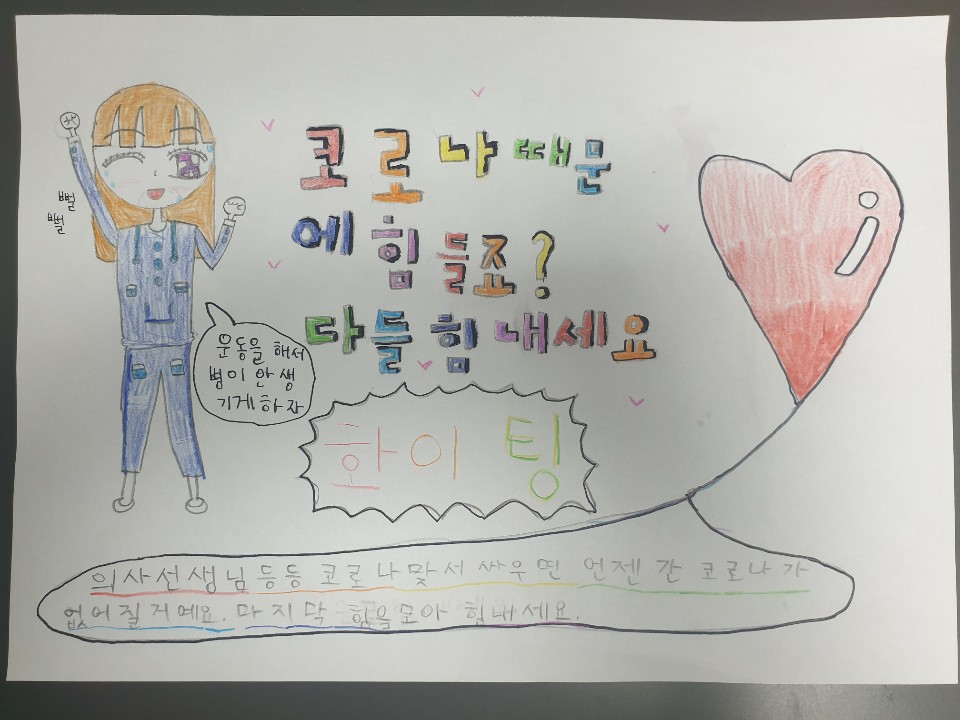 코로나때문
에힘들죠?
다들힘내세요
뻘
뻘
운동을 해서
병이 안 생
기게 하자
화이팅
의사선생님등등 코로나맞서 싸우면 언젠간 코로나가
없어질거예요. 마지막 힘을모아 힘내세요.